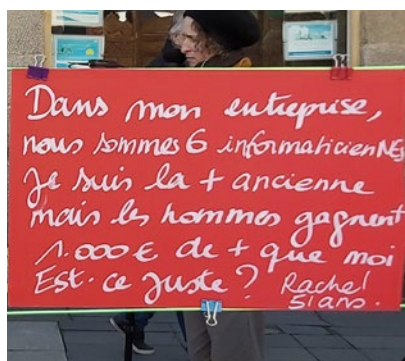 Dans mon entreprise,
nous sommes 6 informaticienNEs
Je suis la + ancienne
mais les hommes gagnent
1.000€ de + que moi
Est-ce juste? Rachel
51 ans.